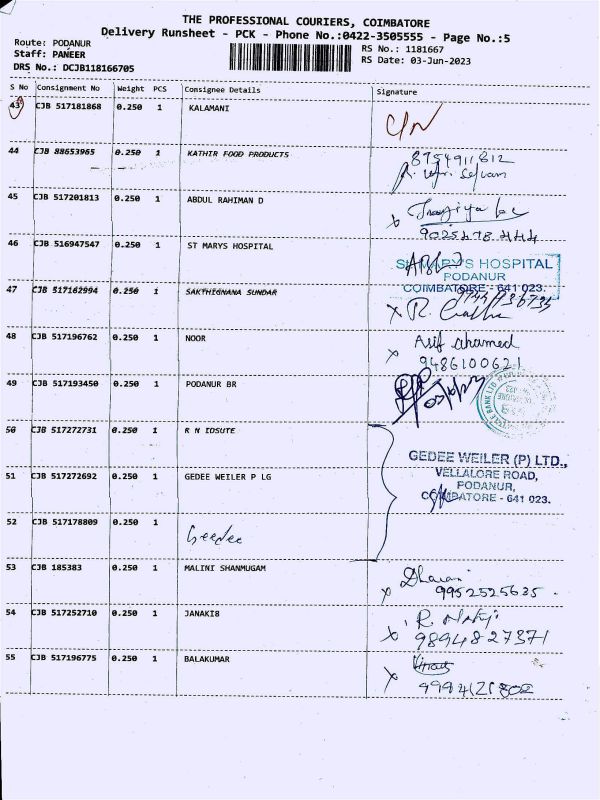 THE PROFESSIONAL COURIERS, COIMBATORE
Delivery Runsheet - PCK - Phone No.:0422-3505555 - Page No.:5
Route: PODANUR
RS No.: 1181667
Staff: PANEER
RS Date: 03-Jun-2023
DRS No.: DCJB118166705
S No Consignment No Weight PCS Consignee Details Signature
43 CJB 517181868 0.250 1 KALAMANI
44 CJB 88653965 0.250 1 KATHIR FOOD PRODUCTS 8754911812
45 CJB 517201813 0.250 1 ABDUL RAHIMAN D
46 CJB 516947547 0.250 1 ST MARYS HOSPITAL
ST MARY'S HOSPITAL
PODANUR
COIMBATORE - 641 023.
47 CJB 517162994 0.250 1 SAKTHIGNANA SUNDAR
48 CJB 517196762 0.250 1 NOOR Asif ahamed
9486100621
49 CJB 517193450 0.250 1 PODANUR BR
50 CJB 517272731 0.250 1 R N IDSUTE
GEDEE WEILER (P) LTD.,
VELLALORE ROAD,
PODANUR,
COIMBATORE - 641 023.
51 CJB 517272692 0.250 1 GEDEE WEILER P LG
52 CJB 517178809 0.250 1
Geedee
53 CJB 185383 0.250 1 MALINI SHANMUGAM
9952525635
54 CJB 517252710 0.250 1 JANAKI8
9894827371
55 CJB 517196775 0.250 1 BALAKUMAR